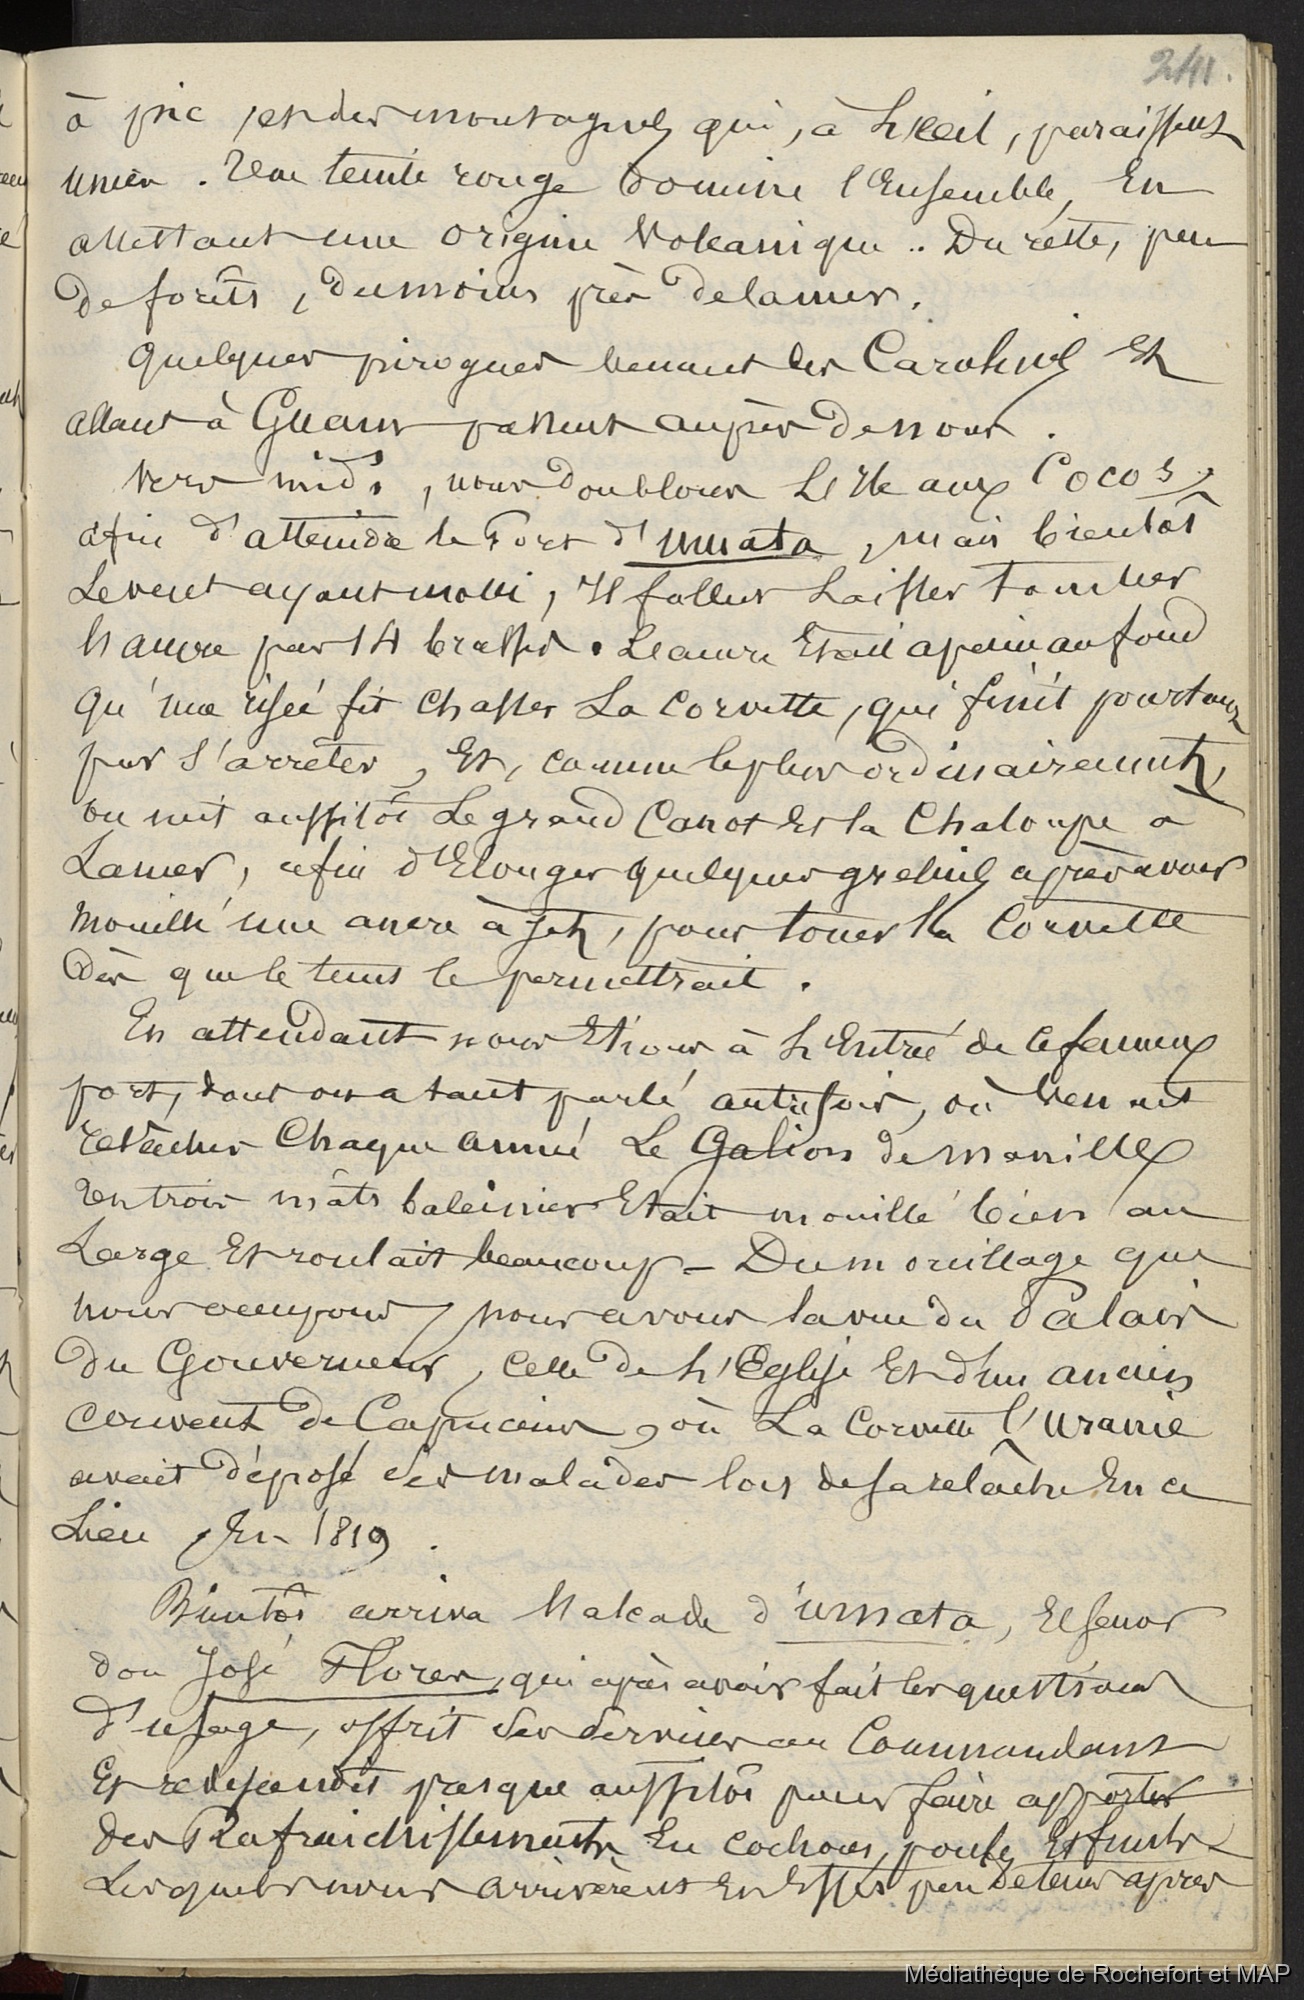 241.
à pic, et des montagnes qui, à l'œil, paraissent
unies. Une teinte rouge domine l'Ensemble, En
attestant une origine Volcanique.. Du reste, peu
de forêts, du moins près de la mer.
Quelques pirogues venant des Carolines Et
allant à Guam passent auprès de nous.
Vers midi, nous doublons L'Ile aux Cocos,
afin d'atteindre le Port d'Umata, mais bientôt
Le vent ayant molli, Il fallut Laisser tomber
l'ancre par 14 brasses. L'ancre Etait apeine au fond
qu'une risée fit chasser La Corvette, qui finit pourtant
par s'arrêter, Et, comme le plus ordinairement,
on mit aussitôt Le grand Canot Et la Chaloupe a
La mer, afin d'Elonger quelques grelins après avoir
mouillé une ancre à jet, pour touer la Corvette
dès que le tems le permettrait.
En attendant nous Etions à L'Entrée de ce fameux
port, dont on a tant parlé autrefois, où venait
relâcher Chaque année Le Galion de Manille
Un trois mâts baleinier Etait mouillé bien au
Large Et roulait beaucoup – Du mouillage que
nous occupons, nous avons la vue du Palais
du Gouverneur, celle de L'Eglise Et d'un ancien
couvent de Capucins, où La Corvette l'Uranie
avait déposé ses malades lors de sa relâche En ce
Lieu En 1819.
Bientôt arriva l'alcade d'Umata, El señor
don José Flores, qui après avoir fait les questions
d'usage, offrit ses services au Commandant
Et redescendit presque aussitôt pour faire apporter
des Rafraichissements En cochons, poules Et fruits
Lesquels nous arrivèrent En Effet peu de tems après
Médiathèque de Rochefort et MAP